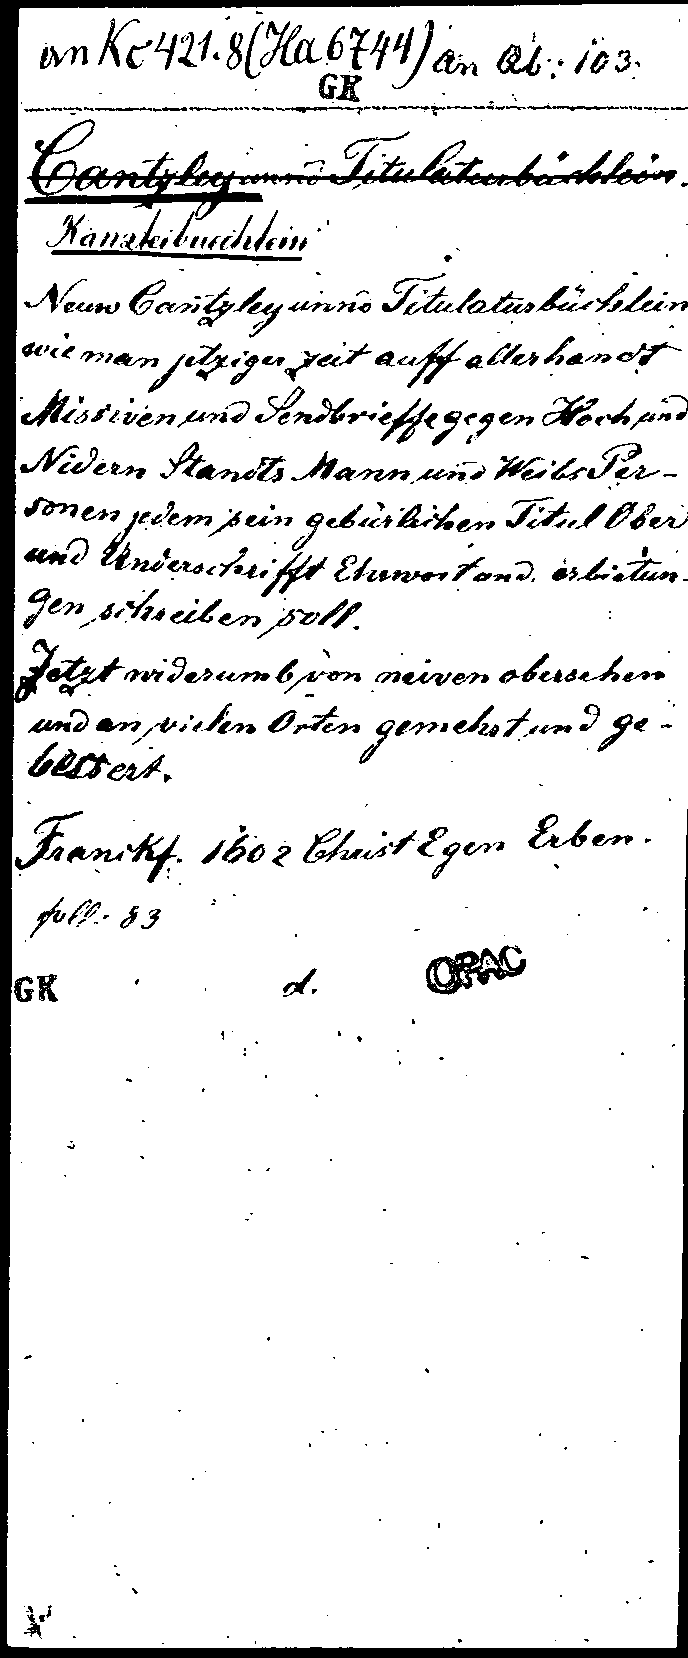 an Kc 421.8 (Ha 6744) an Qb: 103.
GK
Cantzley unnd Titulaturbüchlein.
Kanzleibuechlein
Neuw Cantzley unnd Titulaturbüchlein
wie man jetziger zeit auff allerhandt
Missiven und Sendbrieffe gegen Hoch und
Nidern Standts Mann und Weibs Per-
sonen jedem sein gebürlichen Titul Ober
und Underschrifft Ehrwort and. erbietun-
gen schreiben soll.
Jetzt widerumb von neiwen obersehen
und an vielen Orten gemehrt und ge-
bessert.
Franckf. 1602 Christ Egen Erben.
foll. 83
GK d. OPAC